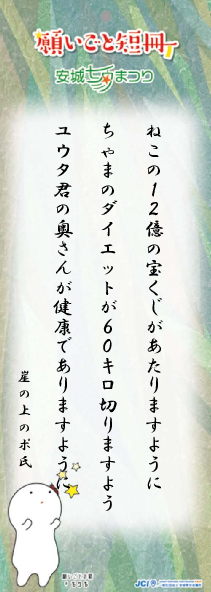 願いごと短冊
安城七夕まつり
ねこの12億の宝くじがあたりますように
ちゃまのダイエットが60キロ切りますよう
ユウタ君の奥さんが健康でありますように
崖の上のポ氏
JCI